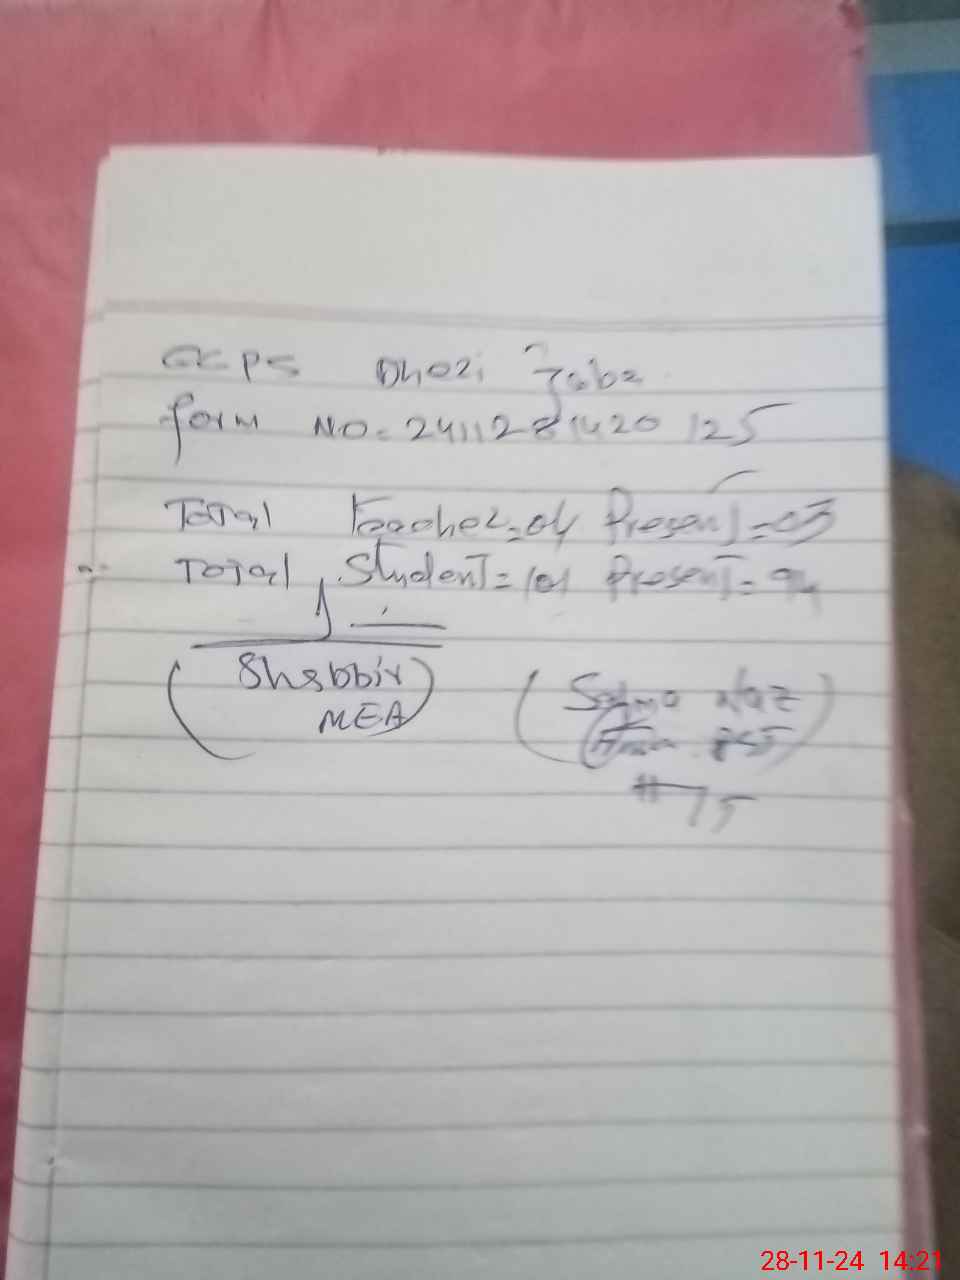 GCPS Dhozi Jaba
form NO. 2411281420125
Total Teacher = 04 Present = 03
Total Student = 101 Present = 94
(Shabbir
MEA)
(Salma Naz
PST)
28-11-24 14:21